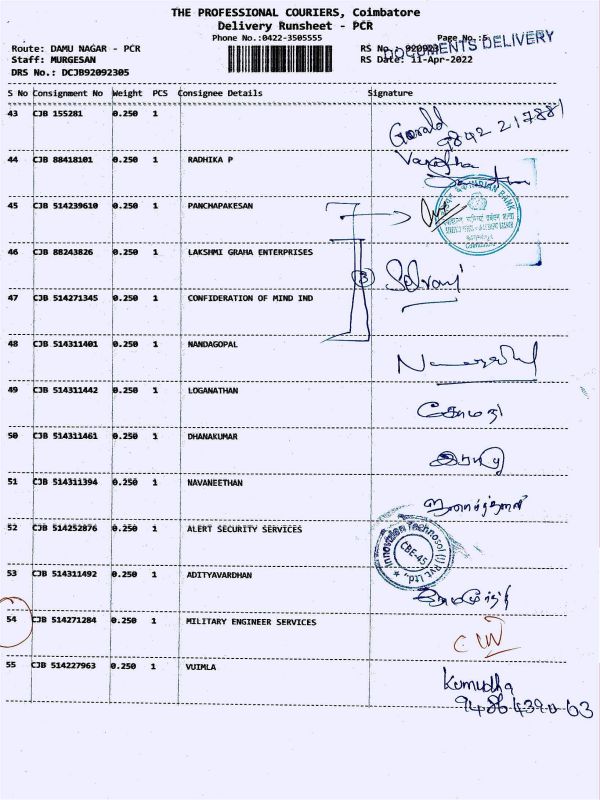 THE PROFESSIONAL COURIERS, Coimbatore
Delivery Runsheet - PCR
Phone No.:0422-3505555
Page No.:5
DOCUMENTS DELIVERY
Route: DAMU NAGAR - PCR
RS No.: 920923
Staff: MURGESAN
RS Date: 11-Apr-2022
DRS No.: DCJB92092305
S No Consignment No Weight PCS Consignee Details Signature
43 CJB 155281 0.250 1
Gerald
9842 217881
44 CJB 88418101 0.250 1 RADHIKA P
45 CJB 514239610 0.250 1 PANCHAPAKESAN
INDIAN BANK
46 CJB 88243826 0.250 1 LAKSHMI GRAHA ENTERPRISES
3
Selvani
47 CJB 514271345 0.250 1 CONFIDERATION OF MIND IND
48 CJB 514311401 0.250 1 NANDAGOPAL
49 CJB 514311442 0.250 1 LOGANATHAN
கோமதி
50 CJB 514311461 0.250 1 DHANAKUMAR
51 CJB 514311394 0.250 1 NAVANEETHAN
52 CJB 514252876 0.250 1 ALERT SECURITY SERVICES
Innovation Technosol (I) Pvt. Ltd.,
CBE-45
53 CJB 514311492 0.250 1 ADITYAVARDHAN
54 CJB 514271284 0.250 1 MILITARY ENGINEER SERVICES
55 CJB 514227963 0.250 1 VUIMLA
Kumudha